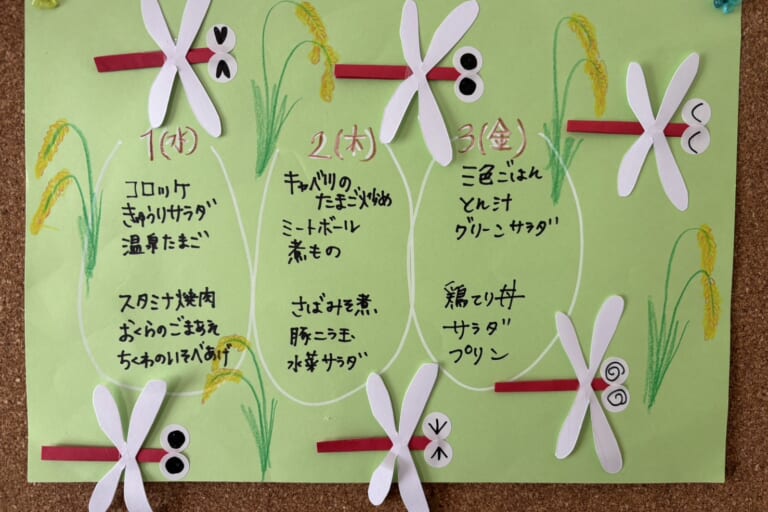 1(水)
コロッケ
きゅうりサラダ
温泉たまご
スタミナ焼肉
おくらのごまあえ
ちくわのいそべあげ
2(木)
キャベツの
たまご炒め
ミートボール
煮もの
さばみそ煮
豚ニラ玉
水菜サラダ
3(金)
三色ごはん
とん汁
グリーンサラダ
鶏てり丼
サラダ
プリン